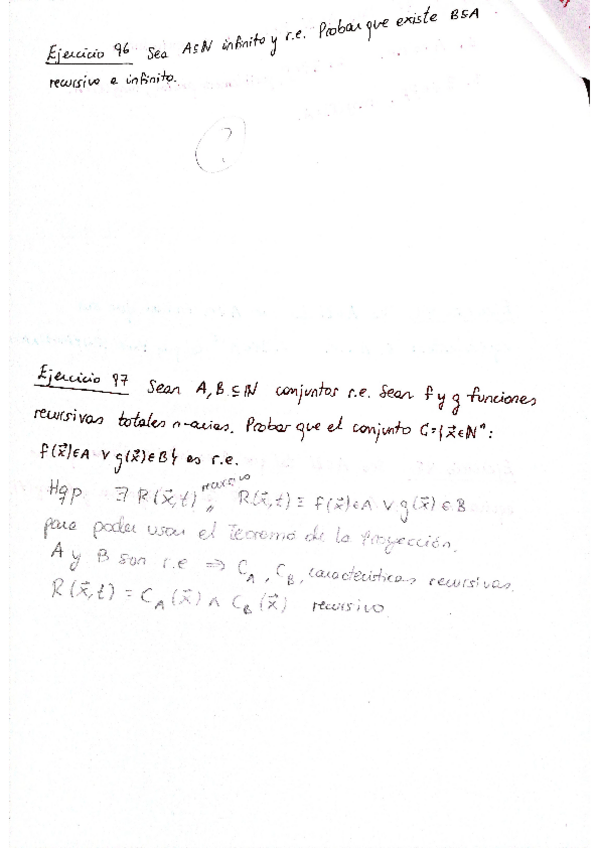 Ejercicio 96 Sea A⊆ℕ infinito y r.e. Probar que existe B⊆A
recursivo e infinito.
?
Ejercicio 97 Sean A, B ⊆ ℕ conjuntos r.e. Sean f y g funciones
recursivas totales n-arias. Probar que el conjunto C={x⃗∈ℕⁿ:
f(x⃗)∈A ∨ g(x⃗)∈B} es r.e.
Hqp ∃ R(x⃗,t) recursivo, R(x⃗,t) ≡ f(x⃗)∈A ∨ g(x⃗)∈B
para poder usar el Teorema de la Proyección.
A y B son r.e ⇒ C_A, C_B, características recursivas.
R(x⃗,t) = C_A(x⃗) ∧ C_B(x⃗) recursivo